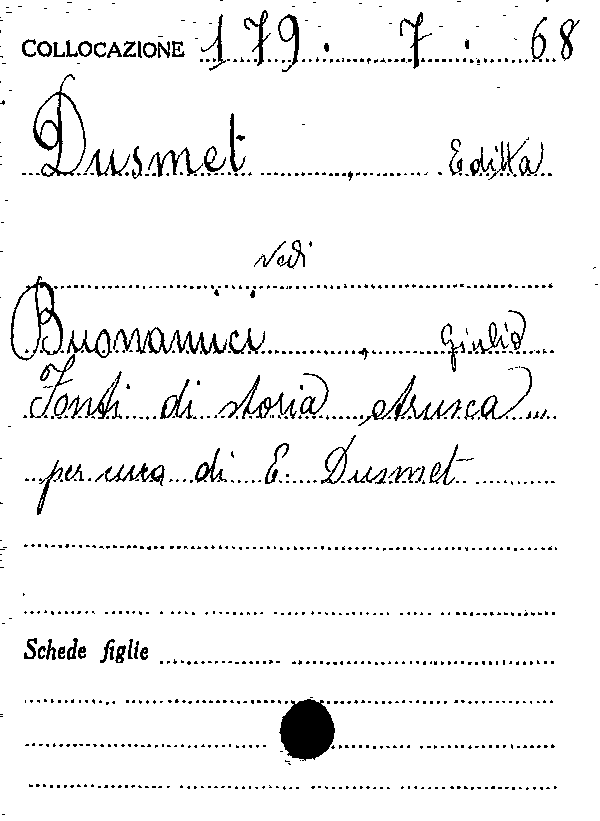 COLLOCAZIONE 179. 7. 68
Dusmet, Editta
vedi
Buonamici, Giulio
Fonti di storia etrusca...
per cura di E. Dusmet
Schede figlie